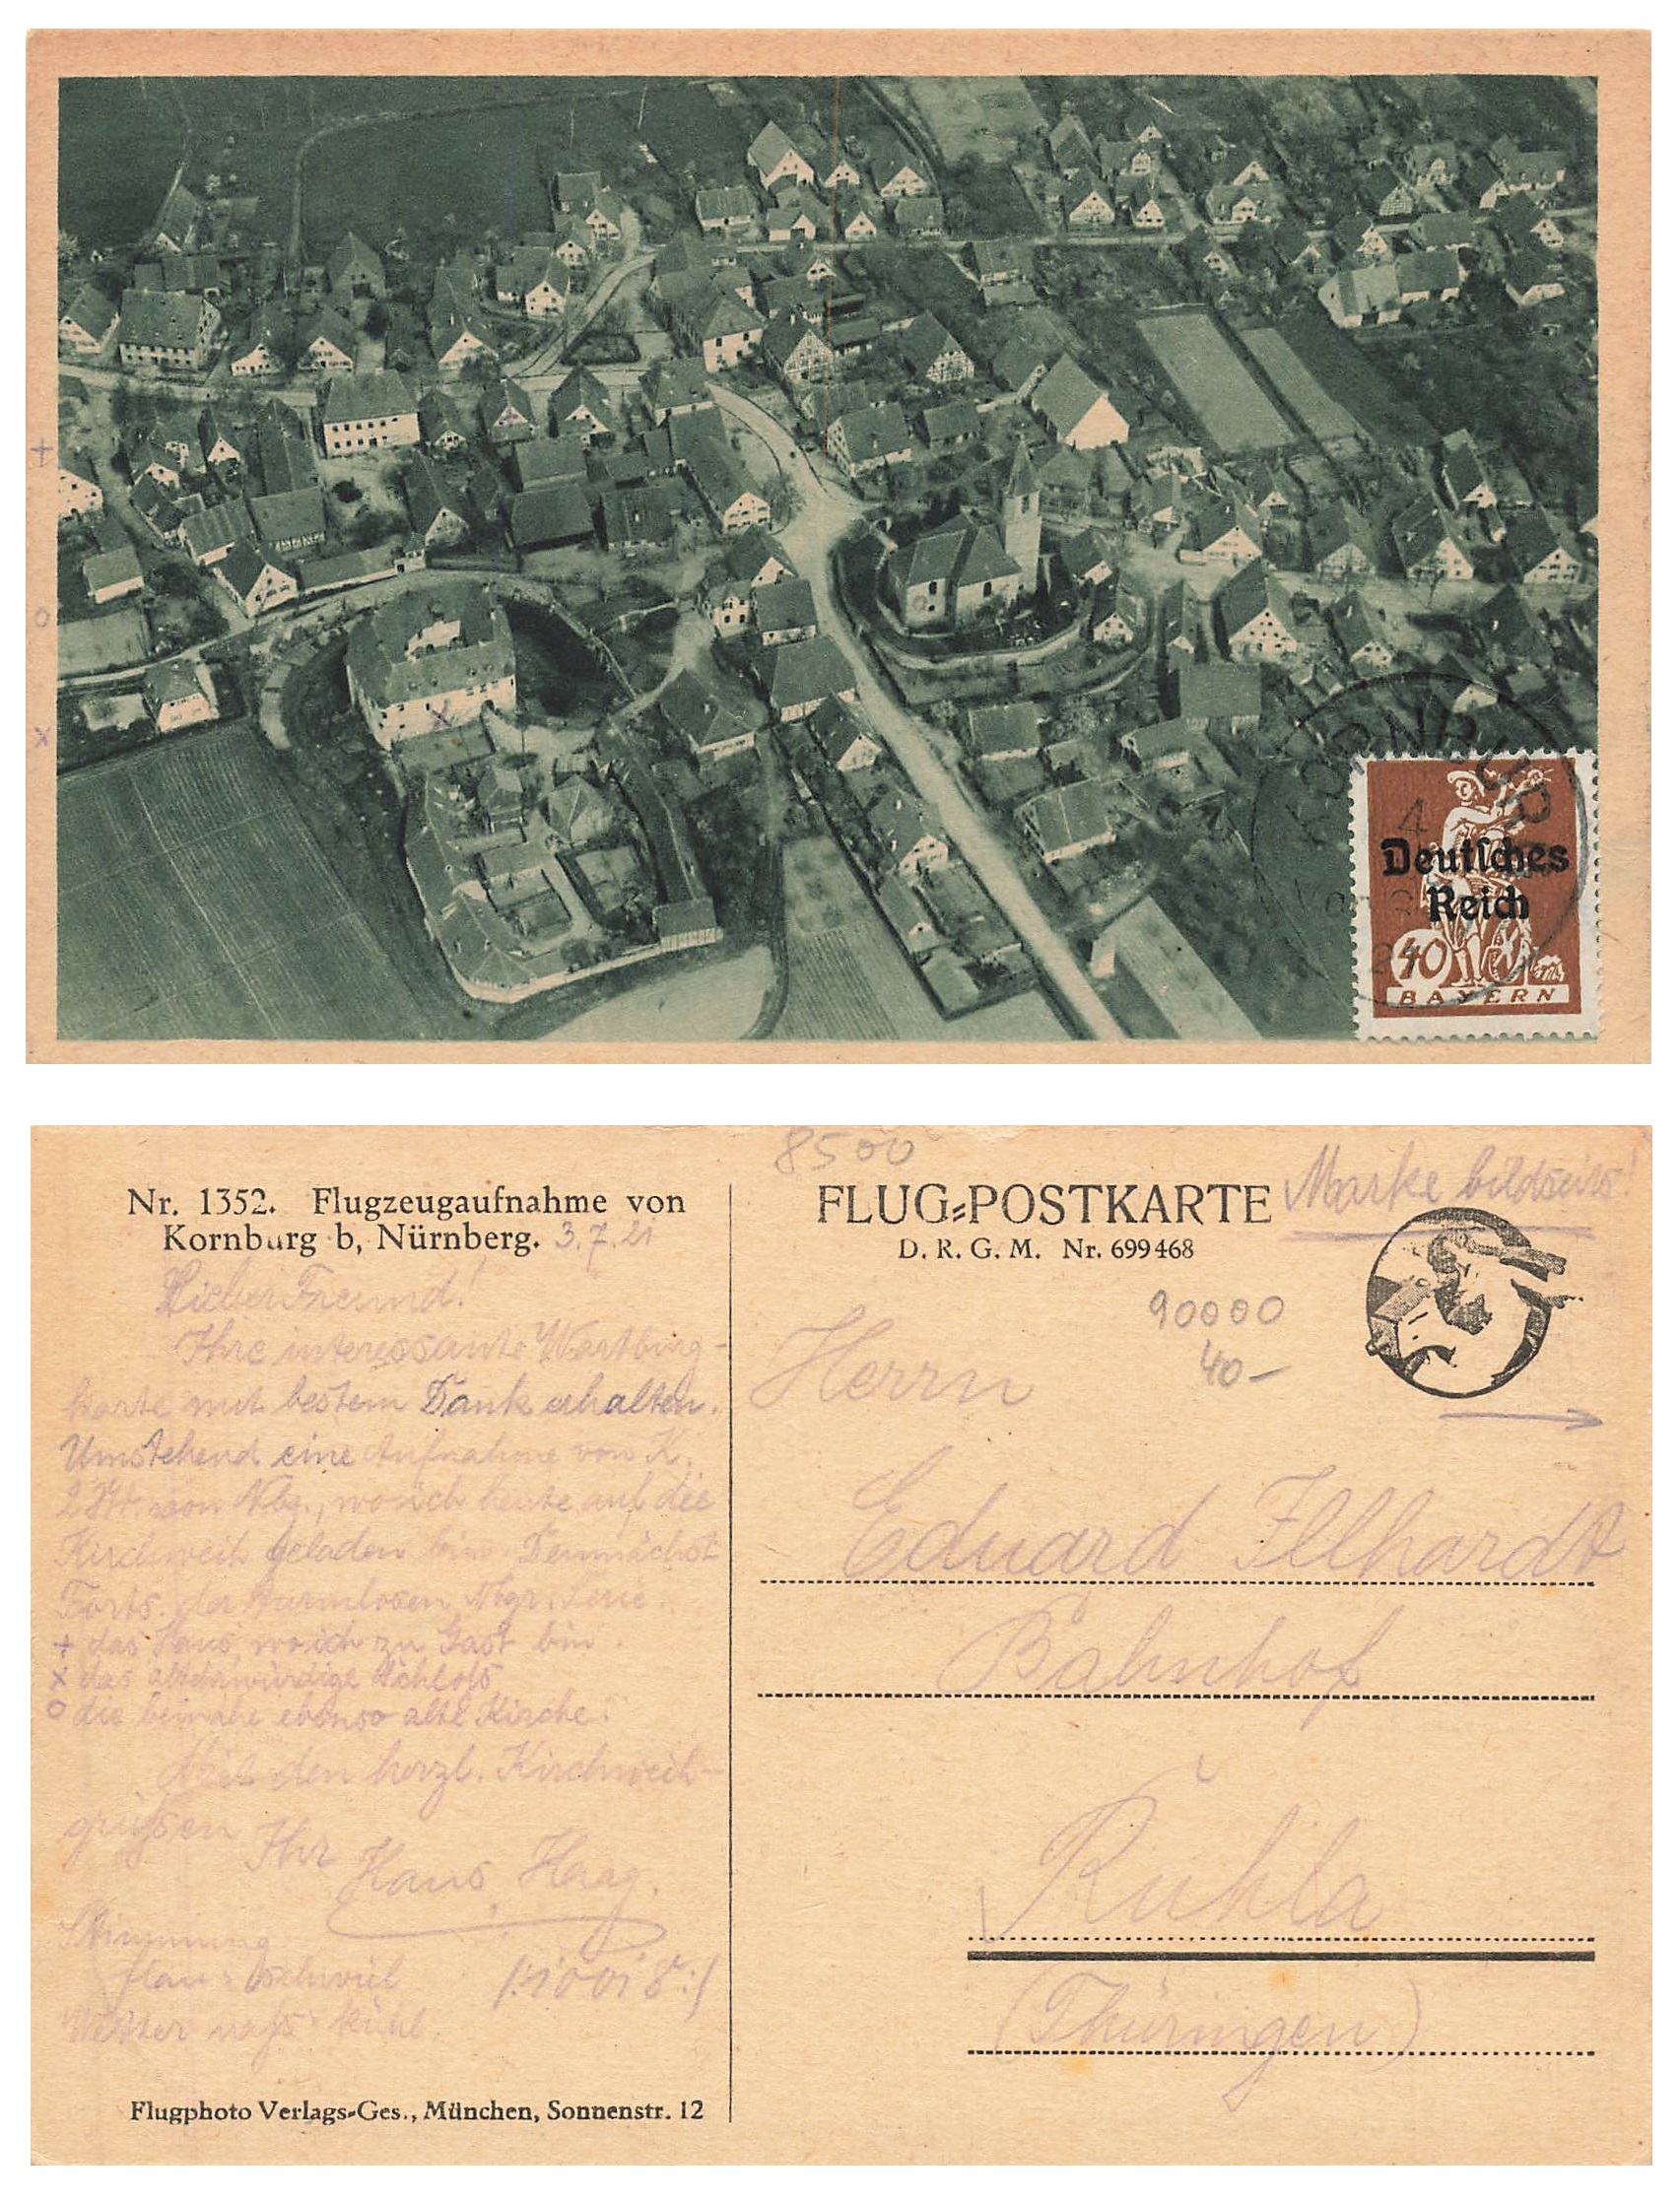 +
o
x
x
KORNBURG
4
Deutsches
Reich
40
BAYERN
8500
Nr. 1352. Flugzeugaufnahme von
Kornburg b, Nürnberg. 3.7.21
Lieber Freund!
Ihre interessante Wartburg-
karte mit bestem Dank erhalten.
Umstehend eine Aufnahme von K.
2 von Nbg., wo ich heute auf die
Kirchweih geladen bin. Demnächst
Forts. der turmlosen Nbgr. Serie.
+ das Haus, wo ich zu Gast bin.
x das altehrwürdige Schloß
o die beinahe ebenso alte Kirche.
Mit den herzl. Kirchweih-
grüßen
Ihr Hans Haag.
Stimmung
flau
Wetter naß kühl.
Flugphoto Verlags-Ges., München, Sonnenstr. 12
FLUG-POSTKARTE
D. R. G. M. Nr. 699468
Marke bildseits!
90000
40-
Herrn
Eduard Illhardt
Bahnhof
Ruhla
(Thüringen)